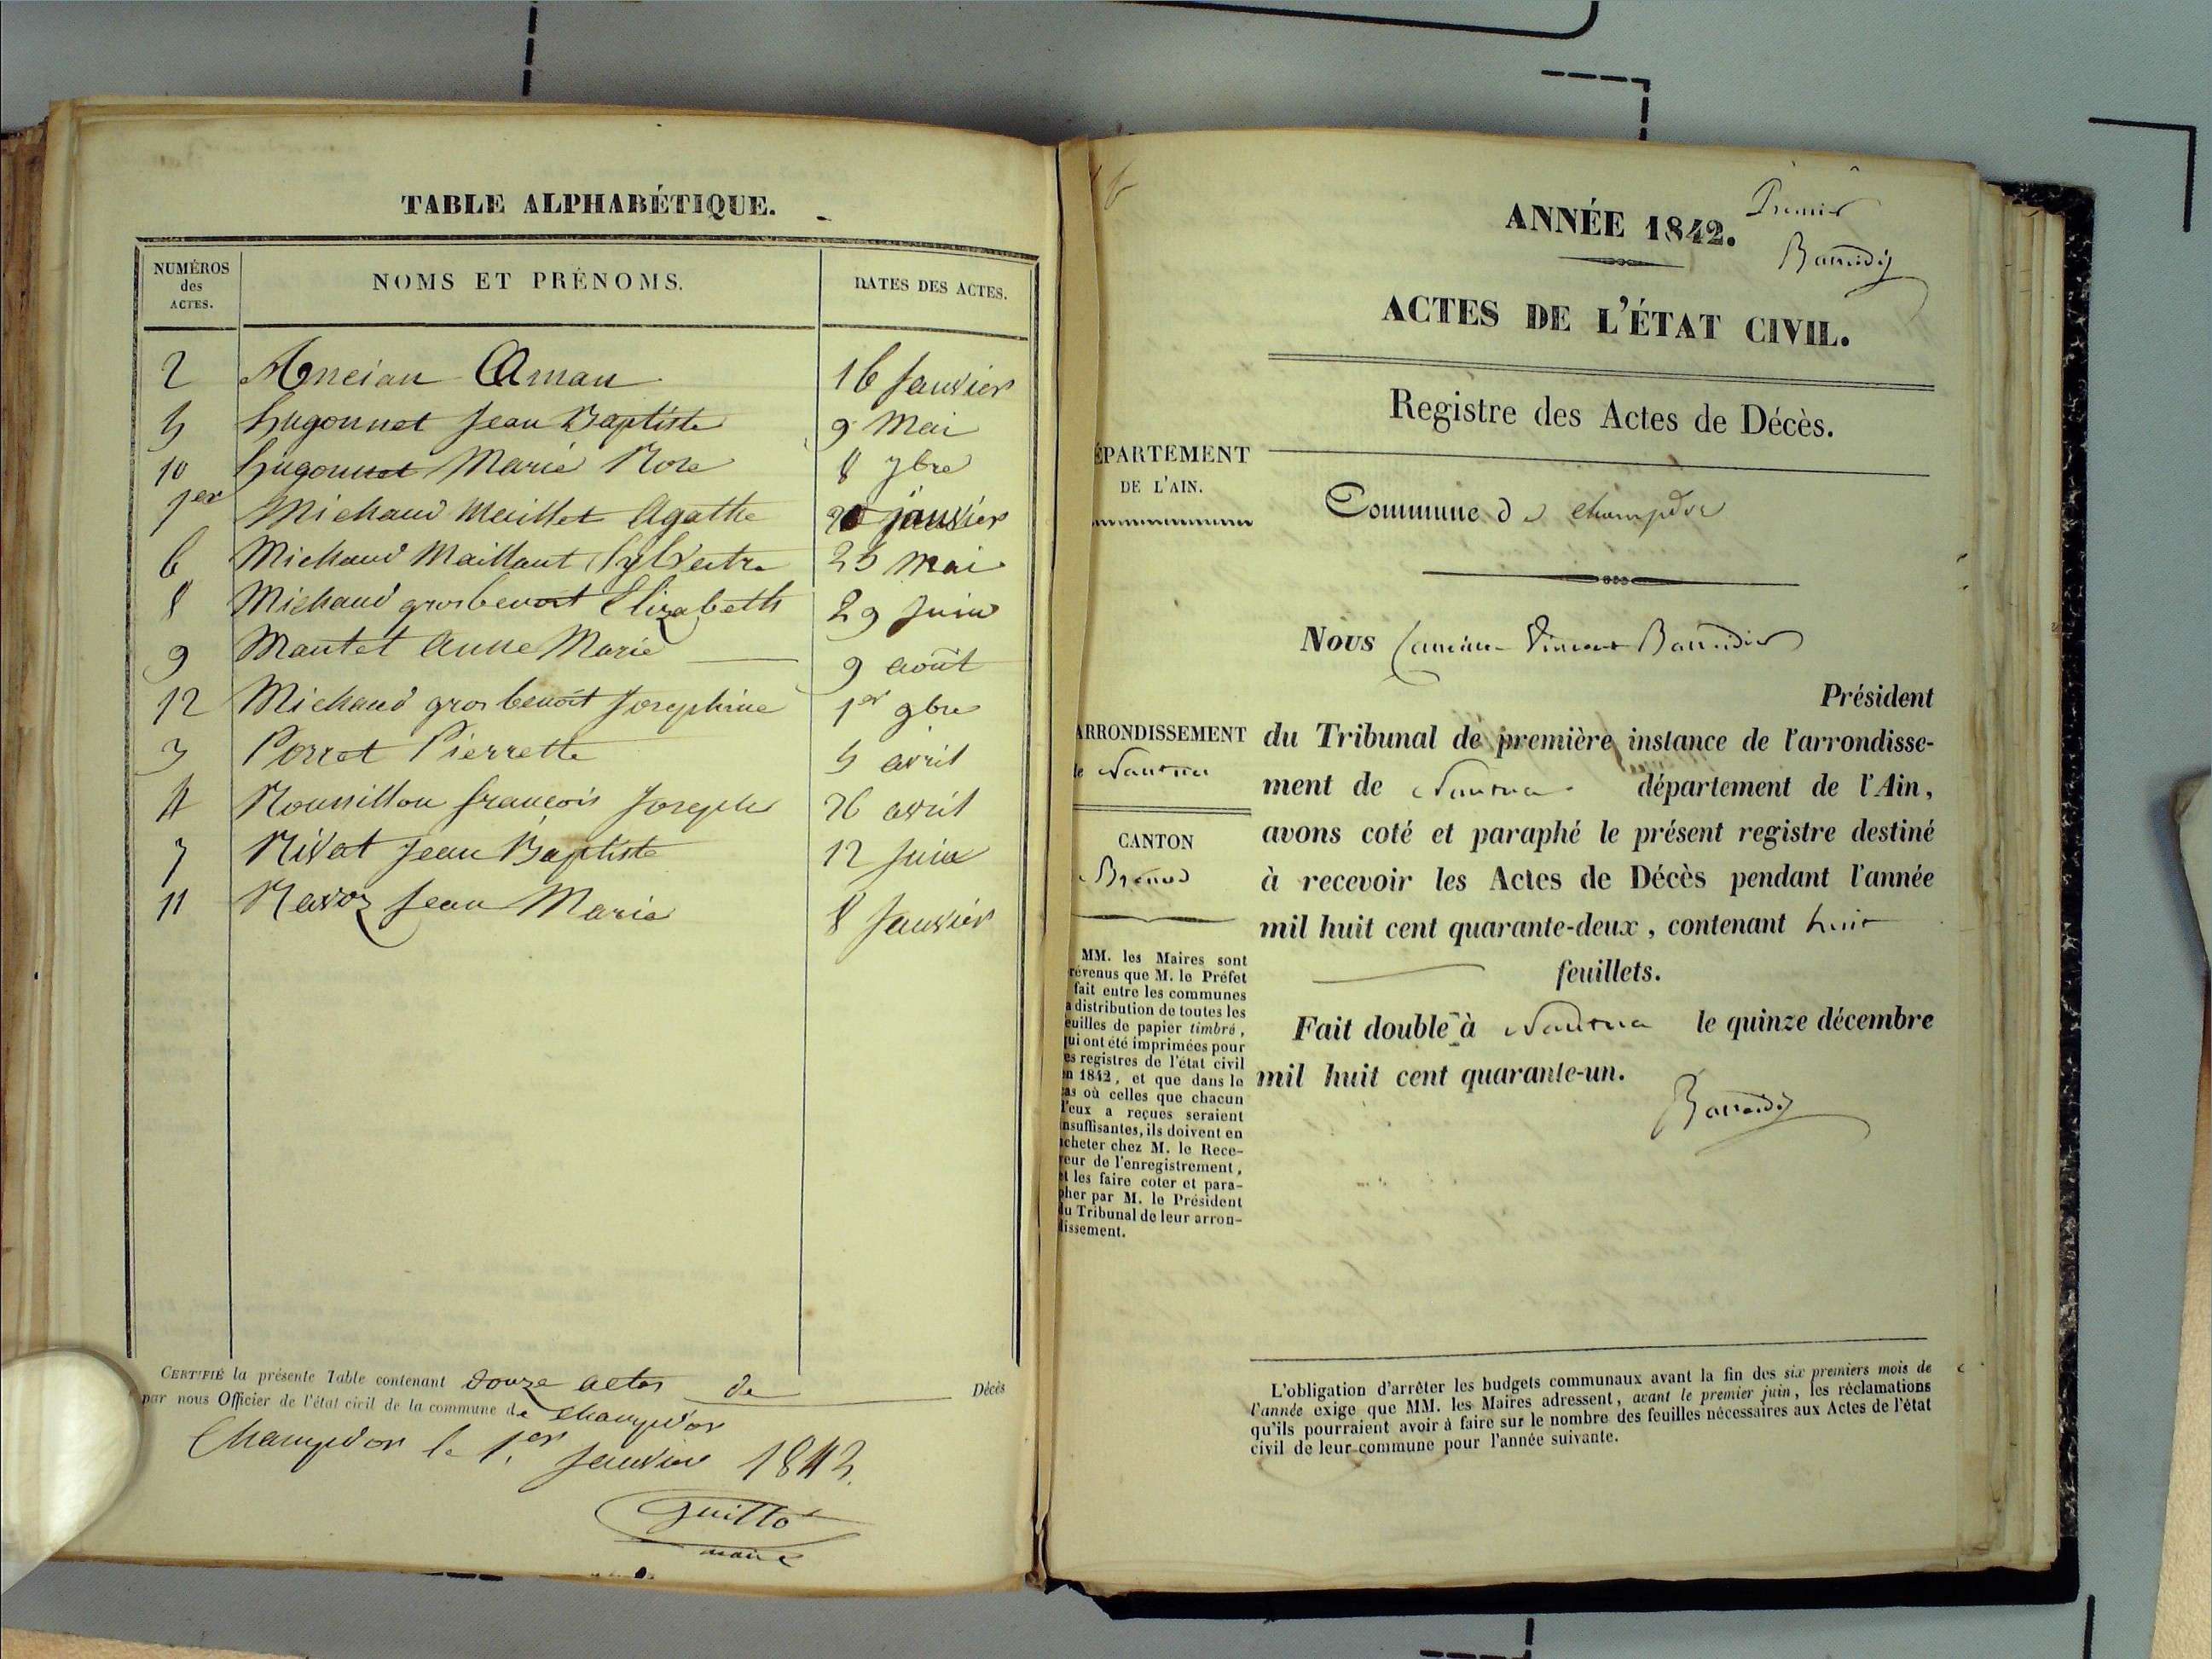 TABLE ALPHABÉTIQUE.
NUMÉROS des ACTES. NOMS ET PRÉNOMS. DATES DES ACTES.
2 Ancian Aman 16 Janvier
5 hugonnet Jean Baptiste 9 Mai
10 hugonnet Marie Rose 8 7bre
1er Michaud Maillet Agathe janvier
6 Michaud Maillaut Sylvestre 25 Mai
8 Michaud grosbenoit Elizabeth 29 Juin
9 Mautet Anne Marie 9 août
12 Michaud grosbenoit Josephine 1er 9bre
3 Porret Pierrette 5 avril
4 Roussillon françois Joseph 26 avril
7 Rivat Jean Baptiste 12 Juin
11 Ravoz Jean Marie 8 Janvier
CERTIFIÉ la présente Table contenant douze actes de Décès
par nous Officier de l'état civil de la commune de Champd'or
Champd'or le 1er Janvier 1843.
Guillot
maire
ANNÉE 1842.
Premier
ACTES DE L'ÉTAT CIVIL.
Registre des Actes de Décès.
ÉPARTEMENT
DE L'AIN.
Commune de champdor
Nous Vincent
Président
ARRONDISSEMENT
de Nantua
CANTON
Brénod
du Tribunal de première instance de l'arrondisse-
ment de Nantua département de l'Ain,
avons coté et paraphé le présent registre destiné
à recevoir les Actes de Décès pendant l'année
mil huit cent quarante-deux, contenant huit
feuillets.
Fait double à Nantua le quinze décembre
mil huit cent quarante-un.
MM. les Maires sont
révenus que M. le Préfet
fait entre les communes
a distribution de toutes les
euilles de papier timbré,
qui ont été imprimées pour
es registres de l'état civil
en 1842, et que dans le
cas où celles que chacun
d'eux a reçues seraient
insuffisantes, ils doivent en
acheter chez M. le Rece-
veur de l'enregistrement,
et les faire coter et para-
pher par M. le Président
du Tribunal de leur arron-
dissement.
L'obligation d'arrêter les budgets communaux avant la fin des six premiers mois de
l'année exige que MM. les Maires adressent, avant le premier juin, les réclamations
qu'ils pourraient avoir à faire sur le nombre des feuilles nécessaires aux Actes de l'état
civil de leur commune pour l'année suivante.